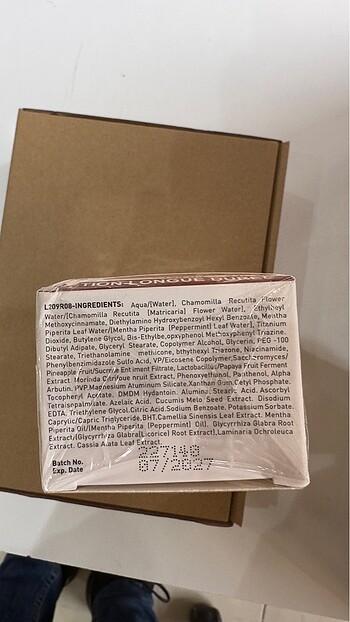 ACTION LONGUE DURÉE
L209R08-INGREDIENTS: Aqua/[Water], Chamomilla Recutita Flower
Water/[Chamomilla Recutita [Matricaria] Flower Water], Ethylhexyl
Methoxycinnamate, Diethylamino Hydroxybenzoyl Hexyl Benzoate, Mentha
Piperita Leaf Water/[Mentha Piperita [Peppermint] Leaf Water], Titanium
Dioxide, Butylene Glycol, Bis-Ethylhexyloxyphenol Methoxyphenyl Triazine,
Dibutyl Adipate, Glyceryl Stearate, Copolymer Alcohol, Glycerin, PEG -100
Stearate, Triethanolamine methicone, Triazone, Niacinamide,
Phenylbenzimidazole Sulfo Acid, VP/Eicosene Copolymer, Saccharomyces/
Pineapple Fruit/Sucrose Ent iment Filtrate, Lactobacillus/Papaya Fruit Ferment
Extract Morinda Citrifolia Fruit Extract, Phenoxyethanol, Panthenol, Alpha
Arbutin, PVP, Magnesium Aluminum Silicate, Xanthan Gum, Cetyl Phosphate,
Tocopheryl Acetate, DMDM Hydantoin, Aluminum Stearic Acid, Ascorbyl
Tetraisopalmitate, Azelaic Acid, Cucumis Melo Seed Extract, Disodium
EDTA, Triethylene Glycol, Citric Acid, Sodium Benzoate, Potassium Sorbate,
Caprylic/Capric Triglyceride, BHT, Camellia Sinensis Leaf Extract, Mentha
Piperita Oil/[Mentha [Peppermint] Oil], Glycyrrhiza Glabra Root
Extract/[Glycyrrhiza Glabra[Licorice] Root Extract], Laminaria Ochroleuca
Extract, Cassia Alata Leaf Extract.
Batch No. 227148
Exp. Date 07/2027